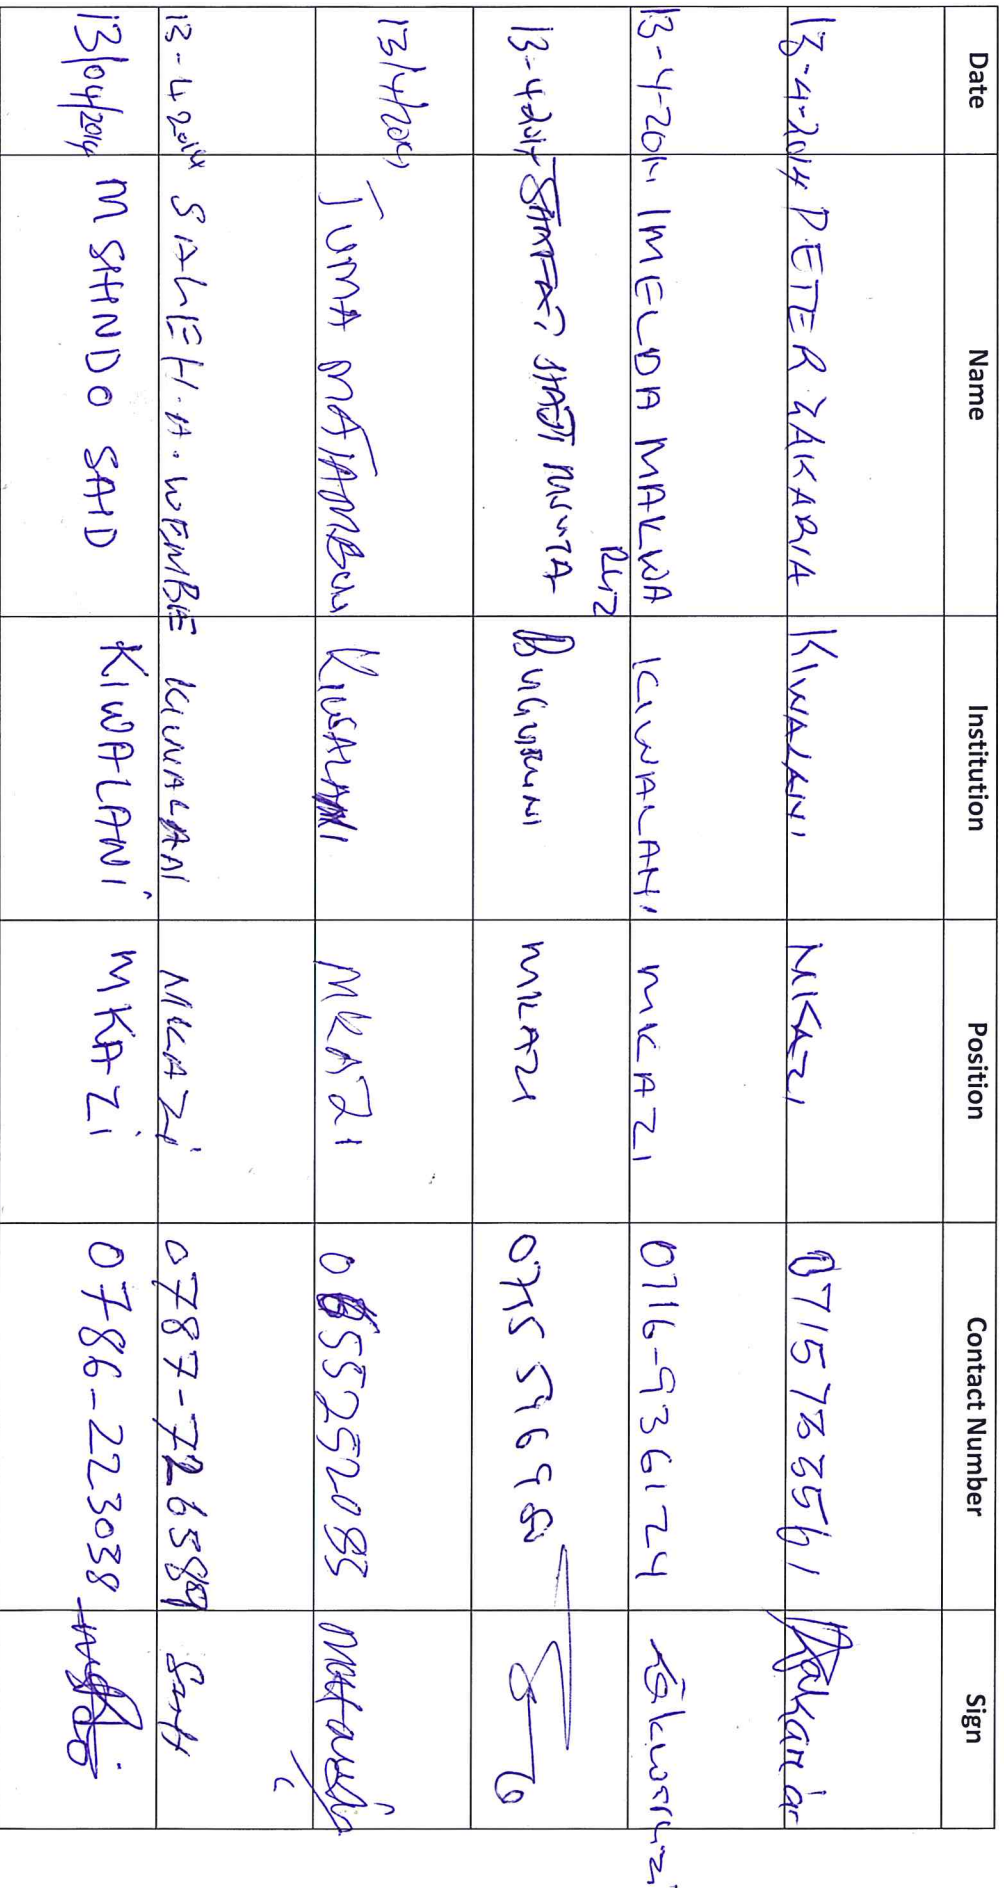 Date Name Institution Position Contact Number Sign
13-4-2014 PETER ZAKARIA KIWALANI MKAZI 0715783561 Zakaria
13-4-2014 IMELDA MAKWA KIWALANI MKAZI 0716-936124
RUZ
13-4-2014 HAJI BUGURUNI MKAZI
13/4/2014 JUMA MATAMBCU KIWALANI MKAZI 0655252085
13-4-2014 SALEH.A.WEMBE KIWALANI MKAZI 0787-726589
13/04/2014 MSHINDO SAID KIWALANI MKAZI 0786-223038